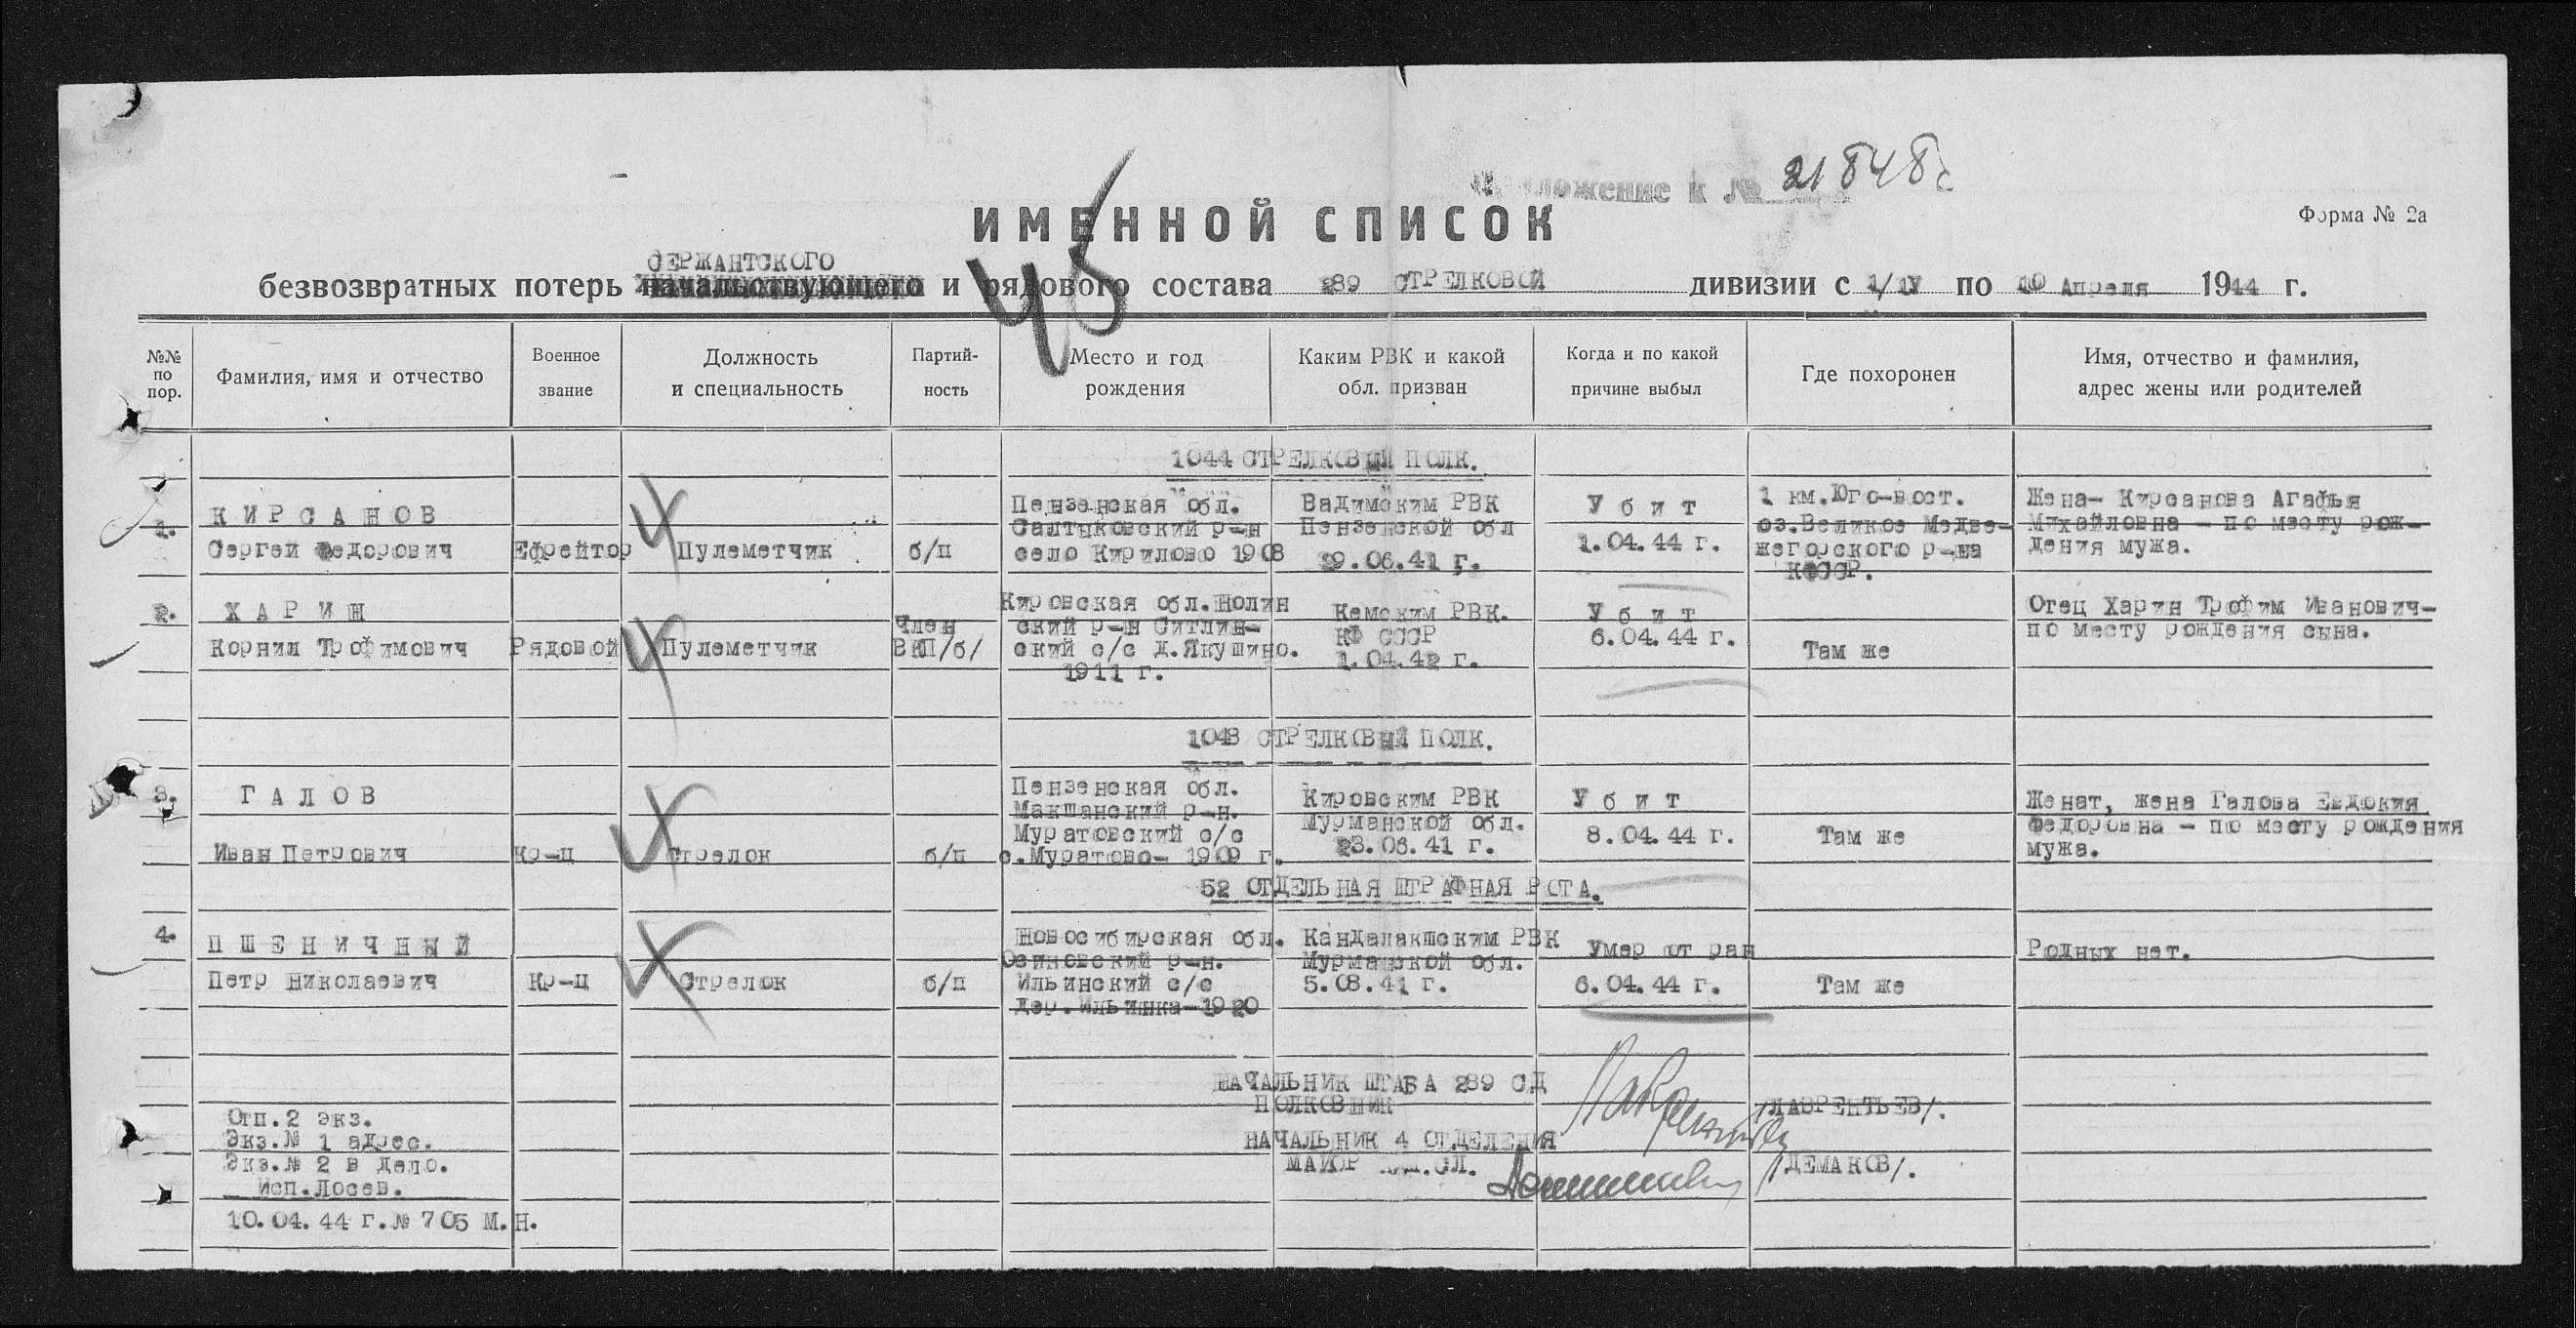 ложение к № 21848с
ИМЕННОЙ СПИСОК
Форма № 2а
45
СЕРЖАНТСКОГО
безвозвратных потерь начальствующего и рядового состава 289 СТРЕЛКОВОЙ дивизии с 1/IV по 10 Апреля 1944 г.
№№ по пор.
Фамилия, имя и отчество
Военное звание
Должность и специальность
Партий-ность
Место и год рождения
Каким РВК и какой обл. призван
Когда и по какой причине выбыл
Где похоронен
Имя, отчество и фамилия, адрес жены или родителей
1044 СТРЕЛКОВЫЙ ПОЛК.
1.
КИРСАНОВ
Сергей Федорович
Ефрейтор
Пулеметчик
б/п
Пензенская обл.
Салтыковский р-н
село Кирилово 1908
Вадимским РВК
Пензенской обл
29.06.41 г.
Убит
1.04.44 г.
1 км.Юго-вост.
оз.Великое Медве-
жегорского р-на
КФССР.
Жена- Кирсанова Агафья
Михайловна - по месту рож-
дения мужа.
2.
ХАРИН
Корнил Трофимович
Рядовой
Пулеметчик
Член
ВКП/б/
Кировская обл.Нолин
ский р-н Ситлин-
ский с/с д.Якушино.
1911 г.
Кемским РВК.
КФ СССР
1.04.42 г.
Убит
6.04.44 г.
Там же
Отец Харин Трофим Иванович-
по месту рождения сына.
1048 СТРЕЛКОВЫЙ ПОЛК.
3.
ГАЛОВ
Иван Петрович
Кр-ц
Стрелок
б/п
Пензенская обл.
Макшанский р-н.
Муратовский с/с
с.Муратово- 1909 г.
Кировским РВК
Мурманской обл.
23.06.41 г.
Убит
8.04.44 г.
Там же
Женат, жена Галова Евдокия
Федоровна - по месту рождения
мужа.
52 ОТДЕЛЬНАЯ ШТРАФНАЯ РОТА.
4.
ПШЕНИЧНЫЙ
Петр Николаевич
Кр-ц
Стрелок
б/п
Новосибирская обл.
Осиновский р-н.
Ильинский с/с
дер.Ильинка-1920
Кандалакшским РВК
Мурманской обл.
5.08.41 г.
Умер от ран
6.04.44 г.
Там же
Родных нет.
НАЧАЛЬНИК ШТАБА 289 СД
ПОЛКОВНИК
/ЛАВРЕНТЬЕВ/.
НАЧАЛЬНИК 4 ОТДЕЛЕНИЯ
МАЙОР СЛ.
/ДЕМАКОВ/.
Отп.2 экз.
Экз.№ 1 адрес.
Экз.№ 2 в дело.
Исп.Лосев.
10.04.44 г.№ 705 М.Н.